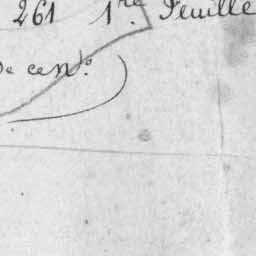 261 1.re Feuille
de ce N.o